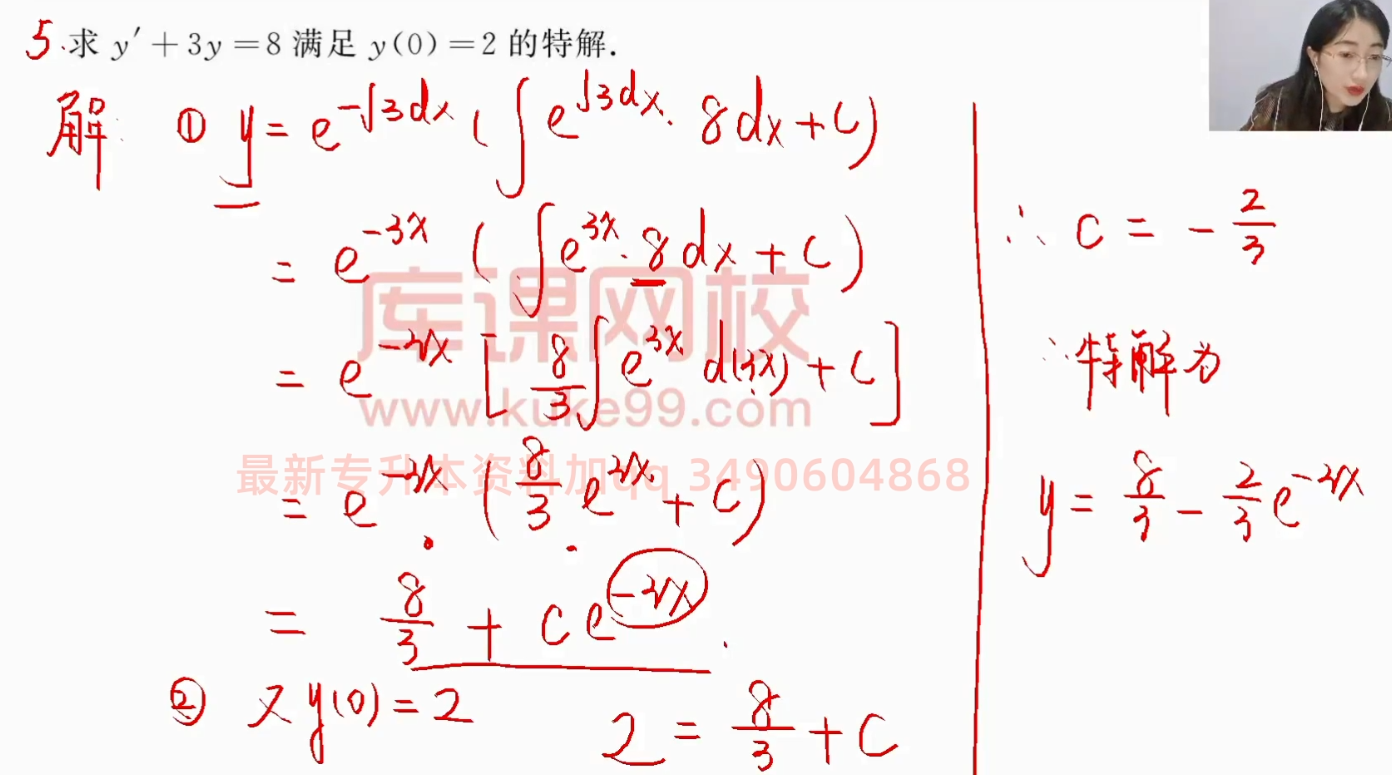 5. 求 y′ + 3y = 8 满足 y(0) = 2 的特解.
解: ① y = e^{-∫3dx} (∫e^{∫3dx}· 8dx + C)
= e^{-3x} (∫e^{3x}· 8dx + C)
= e^{-3x} [8/3 ∫e^{3x} d(3x) + C]
= e^{-3x} (8/3 e^{3x} + C)
= 8/3 + Ce^{-3x}.
② 又 y(0) = 2 2 = 8/3 + C
∴ C = -2/3
∴ 特解为
y = 8/3 - 2/3 e^{-3x}
库课网校
www.kuke99.com
最新专升本资料加qq 3490604868